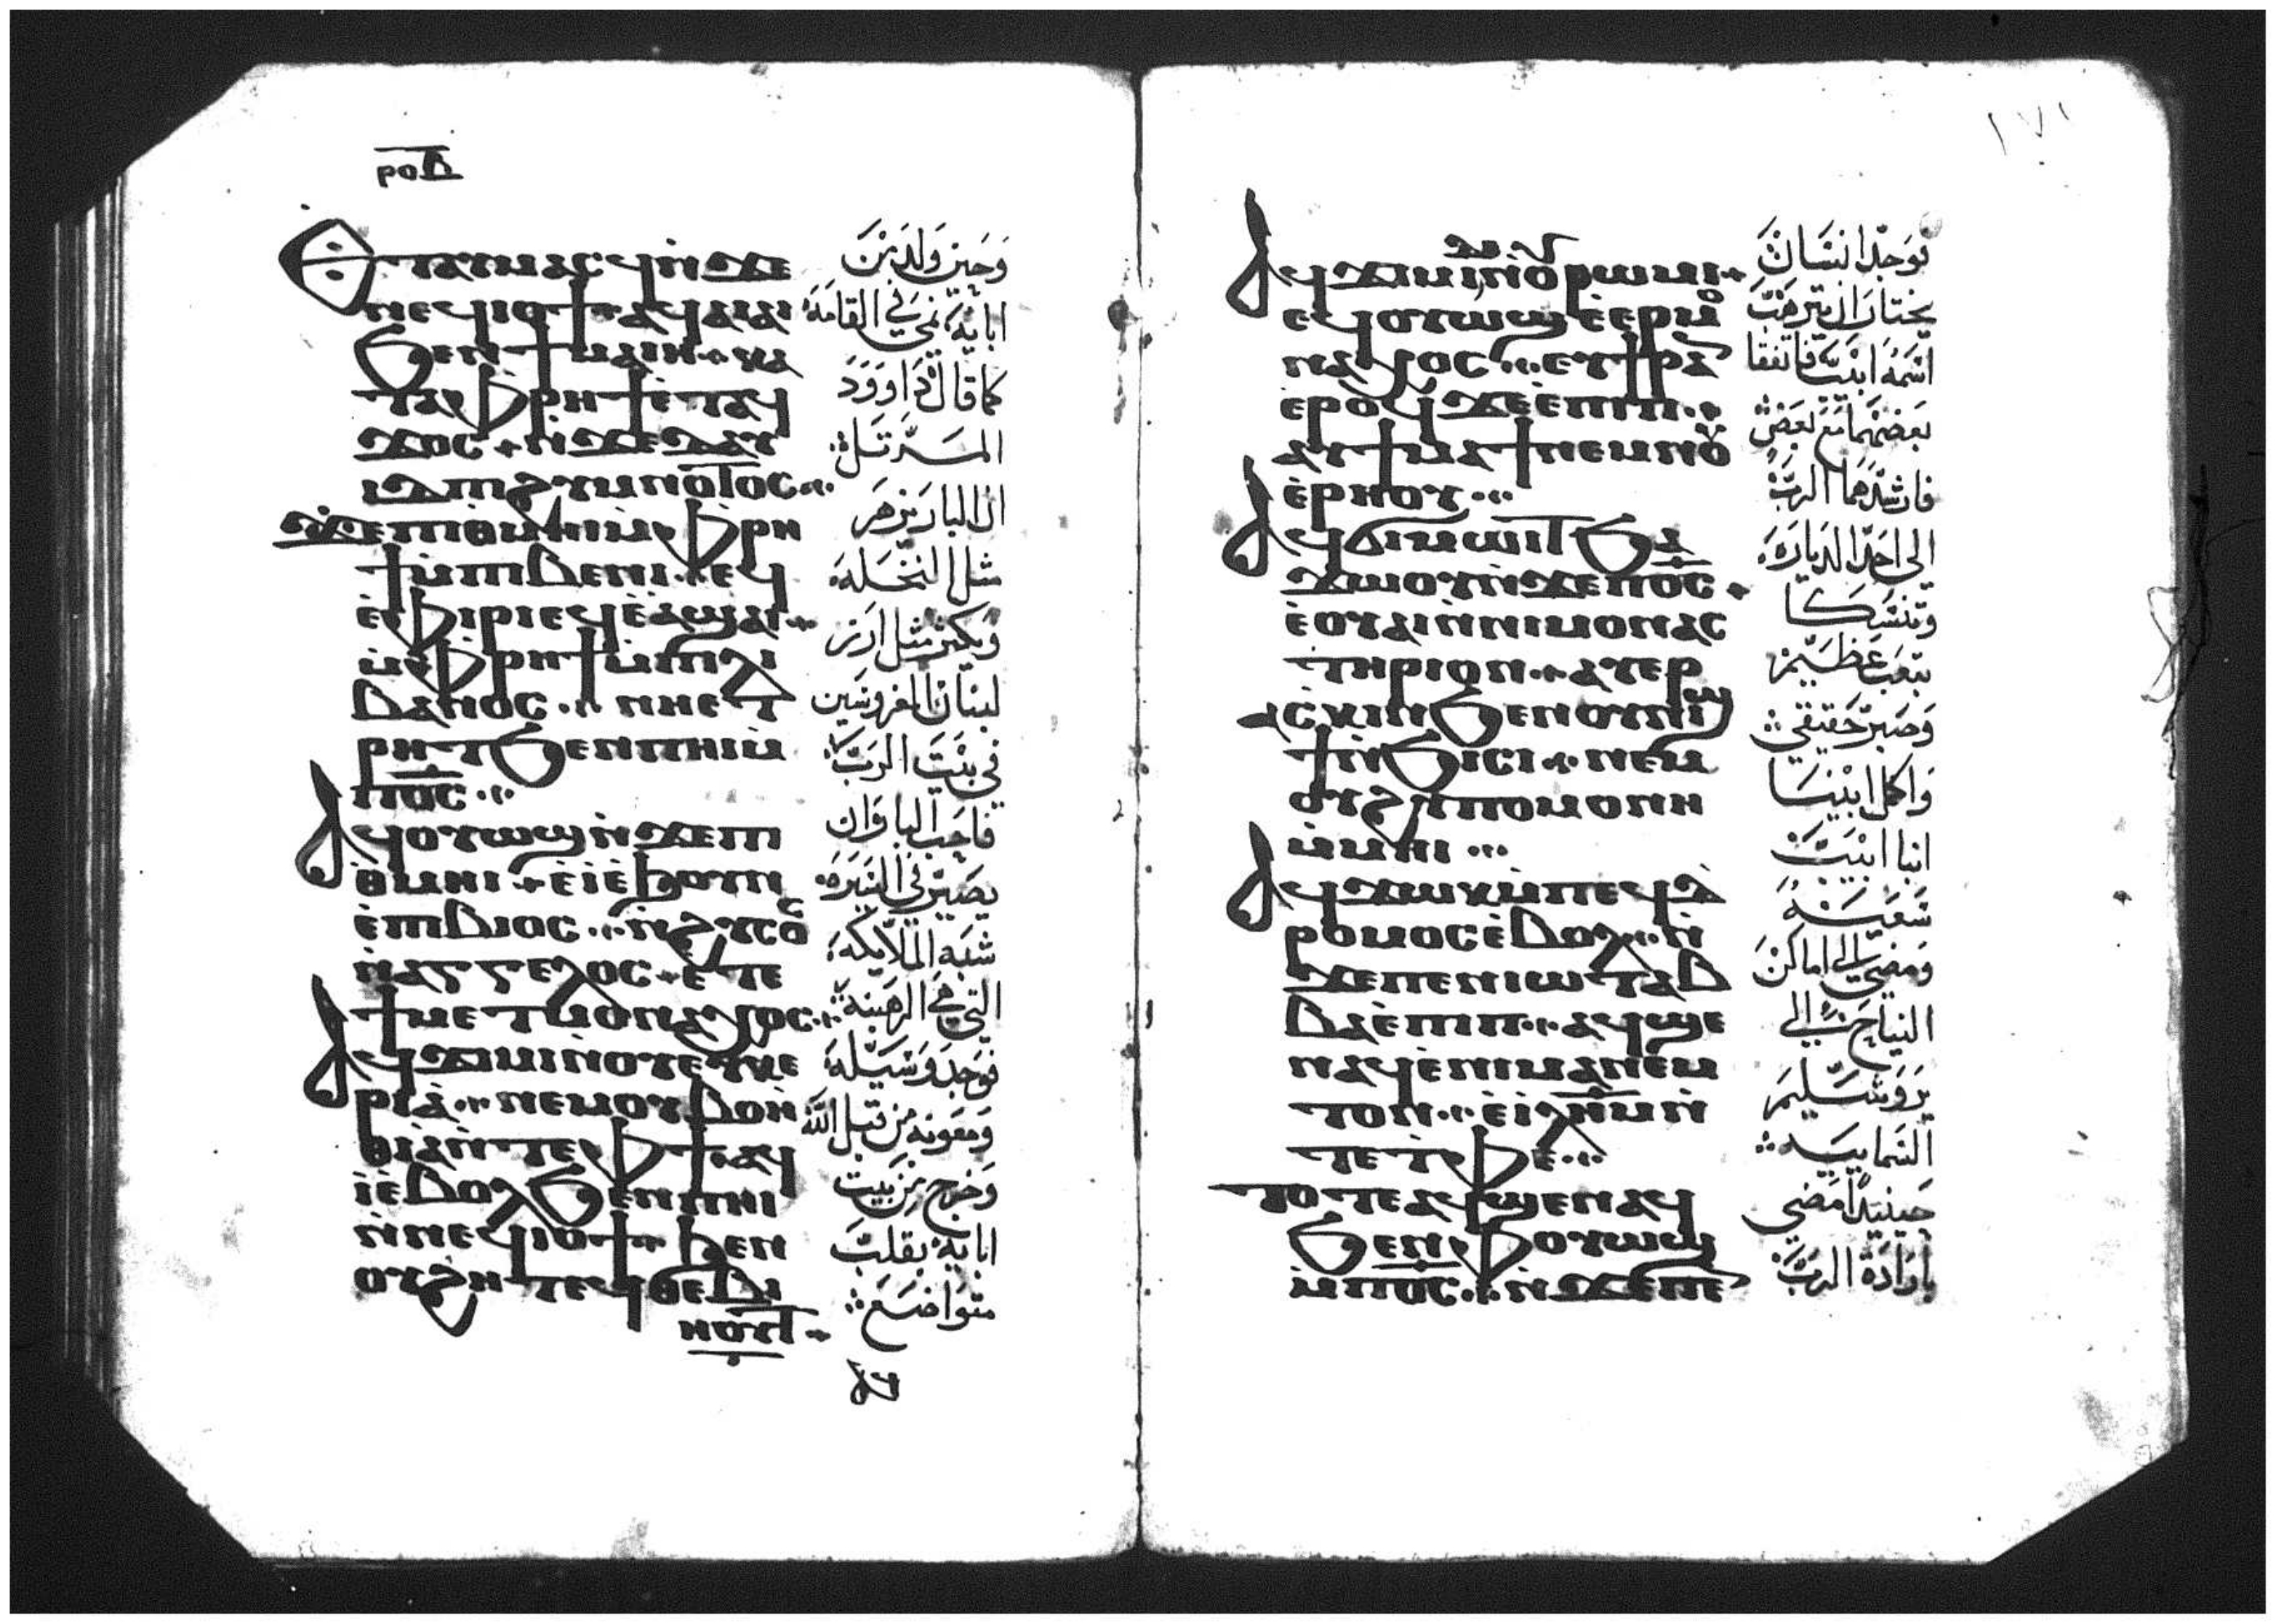 ⲣⲟⲇ
Ⲉⲧⲁⲩⲙⲁⲥϥ ⲛ̀ϫⲉ
ⲛⲉϥⲓⲟϯ ⲁϥⲁⲓⲁⲓ
ϧⲉⲛ ϯⲙⲁⲓⲏ ⲕⲁ
ⲧⲁ ⲫⲣⲏϯ ⲉ̀ⲧⲁϥ
ϫⲟⲥ ⲛ̀ϫⲉ ⲇⲁⲩ
ⲓⲇ ⲡⲓϩⲩⲙⲛⲟⲇⲟⲥ
ϫⲉ ⲡⲓⲑⲙⲏⲓ ⲙ̀ⲫⲣⲏ
ϯ ⲙ̀ⲡⲓⲃⲉⲛⲓ ⲉϥ
ⲉ̀ⲫⲓⲣⲓ ⲉϥⲉ̀ⲁϣⲁⲓ
ⲙ̀ⲫⲣⲏϯ ⲙ̀ⲡⲓⲗⲓ
ⲃⲁⲛⲟⲥ ⲛⲏⲉⲧ
ⲣⲏⲧ ϧⲉⲛ ⲡⲏⲓ ⲙ̀
ⲡⲟ̅ⲥ̅
Ⲁϥⲟⲩⲱϣ ⲛ̀ϫⲉ ⲡⲓ
ⲑ̀ⲙⲏⲓ ⲉ̀ⲓ ⲉ̀ϧⲟⲩⲛ
ⲉ̀ⲡⲓⲃⲓⲟⲥ ⲛ̀ϩⲩⲥⲟ
ⲛ̀ⲁⲅⲅⲉⲗⲟⲥ ⲉ̀ⲧⲉ
ϯⲙⲉⲧⲙⲟⲛⲁⲭⲟⲥ
Ⲁϥϫⲓⲙⲓ ⲛ̀ⲟⲩⲉⲩⲕⲉ
ⲣⲓⲁ̀ ⲛⲉⲙ ⲟⲩⲃⲟⲏ̀
ⲑⲓⲁ ⲛ̀ⲧⲉ ⲫϯ ⲁϥ
ⲓ̀ ⲉ̀ⲃⲟⲗ ϧⲉⲛ ⲡⲏⲓ
ⲛ̀ⲛⲉϥⲓⲟϯ ϧⲉⲛ
ⲟⲩϩⲏⲧ ⲉϥⲑⲉⲃⲓ
ⲛⲟⲩⲧ
ⲁϥ
وحين ولد من
ابايه نمي في القامه
كما قال داوود
المرتل
ان البار يزهر
مثل النخله
ويكثر مثل ارز
لبنان المغروسين
في بيت الرب
فاحب البار ان
يصير في السيره
شبه الملايكه
التي هي الرهبنه
فوجد وسيله
ومعونه من قبل الله
وخرج من بيت
ابايه بقلب
متواضع
١٧١
Ⲁϥϫⲓⲙⲓ ⲛ̀ⲟⲩⲣⲱⲙⲓ
ⲉϥⲟⲩⲱϣ ⲉ̀ⲉⲣⲙⲟ
ⲛⲁⲭⲟⲥ ⲉⲩϯⲣⲁⲛ
ⲉ̀ⲣⲟϥ ϫⲉ ⲉ̀ⲡⲓⲡ
ⲁⲩϯⲙⲁϯ ⲛⲉⲙ ⲛⲟⲩ
ⲉ̀ⲣⲏⲟⲩ
Ⲁϥϭⲓⲙⲱⲓⲧ ϧⲁ
ϫⲱⲟⲩ ⲛ̀ϫⲉ ⲡⲟ̅ⲥ̅
ⲉ̀ⲟⲩⲁⲓ ⲛ̀ⲛⲓⲙⲟⲛⲁⲥ
ⲧⲏⲣⲓⲟⲛ ⲁⲩⲉⲣ
ⲁⲥⲕⲓⲛ ϧⲉⲛ ⲟⲩⲛⲓϣ
ϯ ⲛ̀ϧⲓⲥⲓ ⲛⲉⲙ
ⲟⲩϩⲩⲡⲟⲙⲟⲛⲏ
ⲙ̀ⲙⲏⲓ
Ⲁϥϫⲱⲕ ⲙ̀ⲡⲉϥⲇ
ⲣⲟⲙⲟⲥ ⲉ̀ⲃⲟⲗ ⲛ̀
ϫⲉ ⲡⲉⲛⲓⲱⲧ ⲁⲃ
ⲃⲁ ⲉ̀ⲡⲓⲡ ⲁϥϣⲉ
ⲛⲁϥ ⲉ̀ⲛⲓⲙⲁ ⲛ̀ⲉⲙ
ⲧⲟⲛ ⲉ̀ⲓⲗⲏⲙ ⲛ̀
ⲧⲉ ⲧ̀ⲫⲉ
Ⲧⲟⲧⲉ ⲁϥϣⲉ ⲛⲁϥ
ϧⲉⲛ ⲫⲟⲩⲱϣ
ⲙ̀ⲡⲟ̅ⲥ̅ ⲛ̀ϫⲉ ⲡⲉ
فوجد انسان
يختار ان يترهب
اسمه ابيب فاتفقا
بعضهما مع بعض
فارشدهما الرب
الي احد الدياره
وتنسكا
بتعب عظيم
وصبر حقيقي
واكمل ابينا
انبا ابيب
سعيه
ومضي الي اماكن
النياح الي
يروشليم
السماييه
حينيذ امضي
بارادة الرب